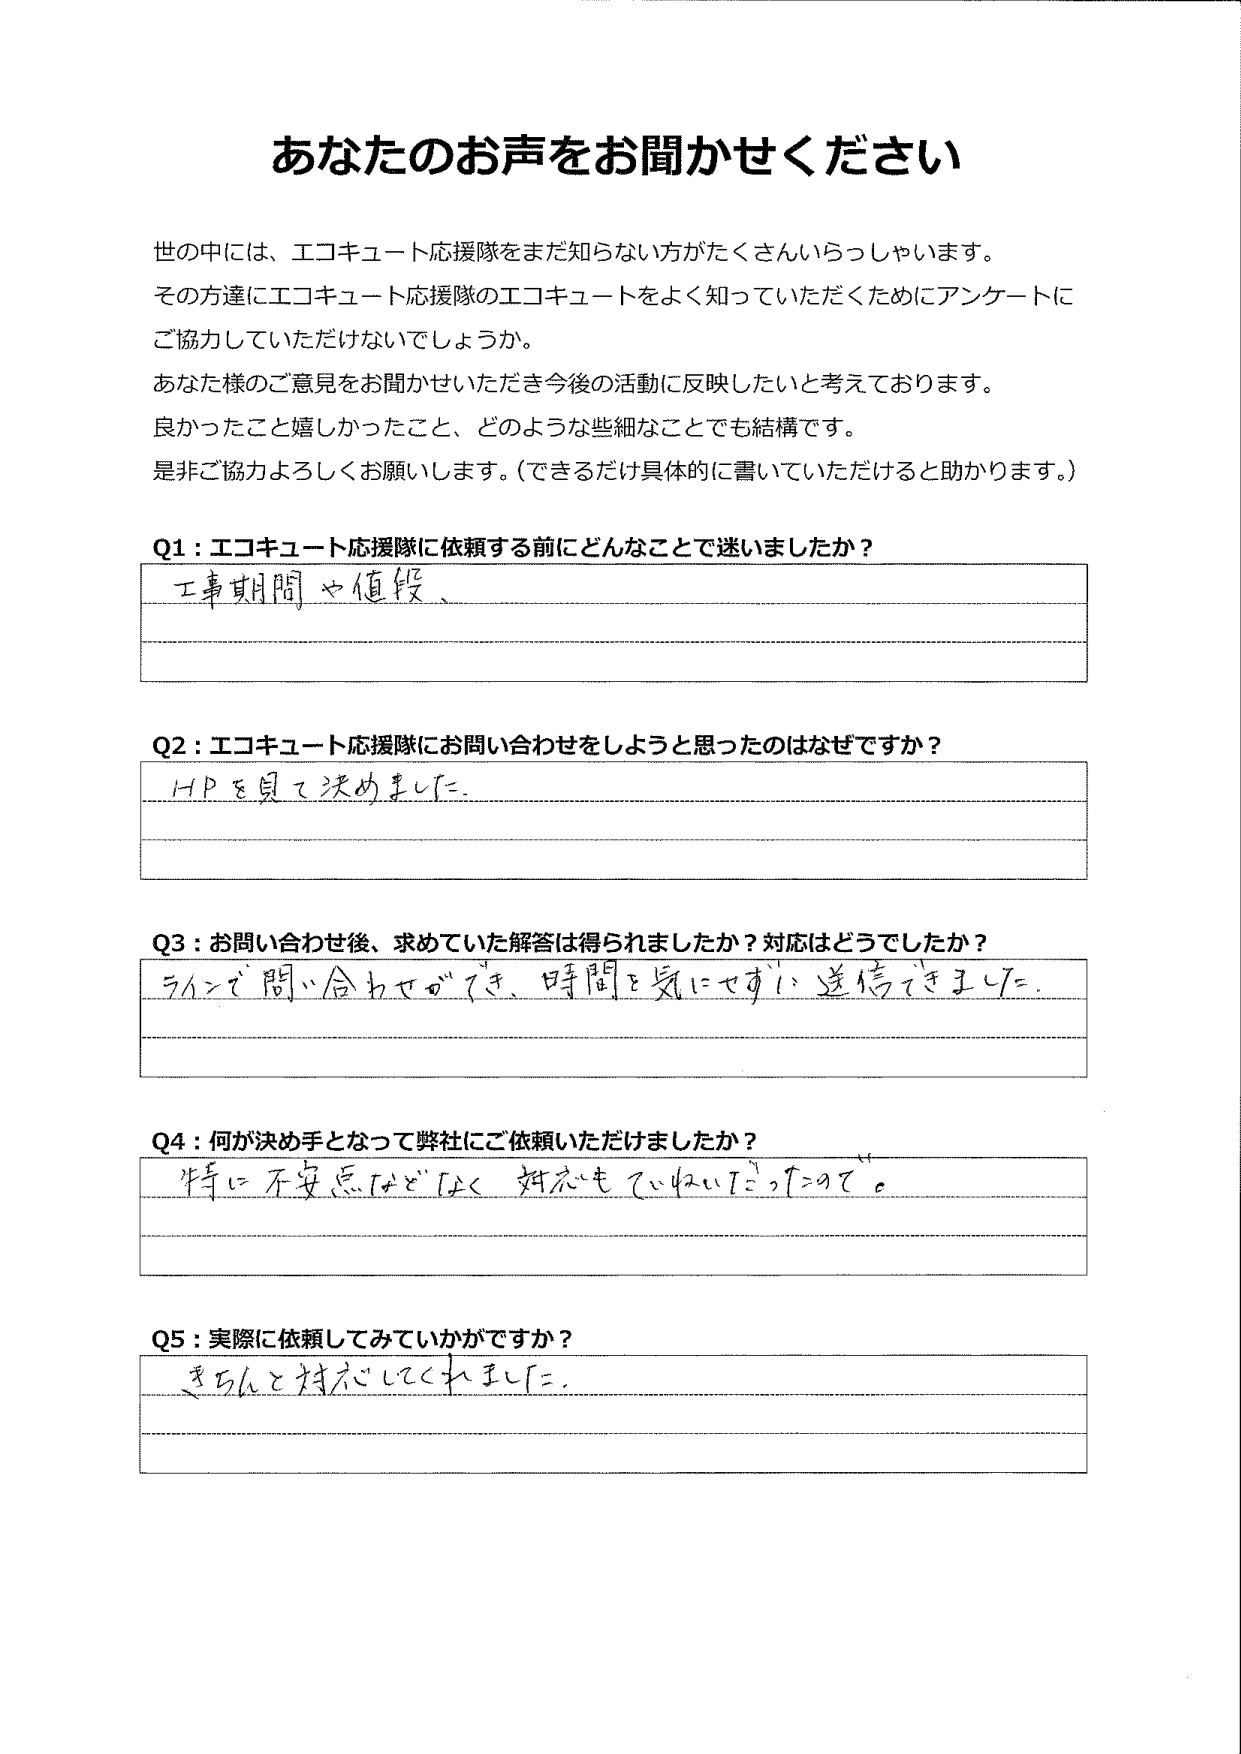 あなたのお声をお聞かせください
世の中には、エコキュート応援隊をまだ知らない方がたくさんいらっしゃいます。
その方達にエコキュート応援隊のエコキュートをよく知っていただくためにアンケートに
ご協力していただけないでしょうか。
あなた様のご意見をお聞かせいただき今後の活動に反映したいと考えております。
良かったこと嬉しかったこと、どのような些細なことでも結構です。
是非ご協力よろしくお願いします。(できるだけ具体的に書いていただけると助かります。)
Q1：エコキュート応援隊に依頼する前にどんなことで迷いましたか？
工事期間や値段、
Q2：エコキュート応援隊にお問い合わせをしようと思ったのはなぜですか？
HPを見て決めました.
Q3：お問い合わせ後、求めていた解答は得られましたか？対応はどうでしたか？
ラインで問い合わせができ、時間を気にせずに送信できました.
Q4：何が決め手となって弊社にご依頼いただけましたか？
特に不安点などなく 対応もていねいだったので。
Q5：実際に依頼してみていかがですか？
きちんと対応してくれました.